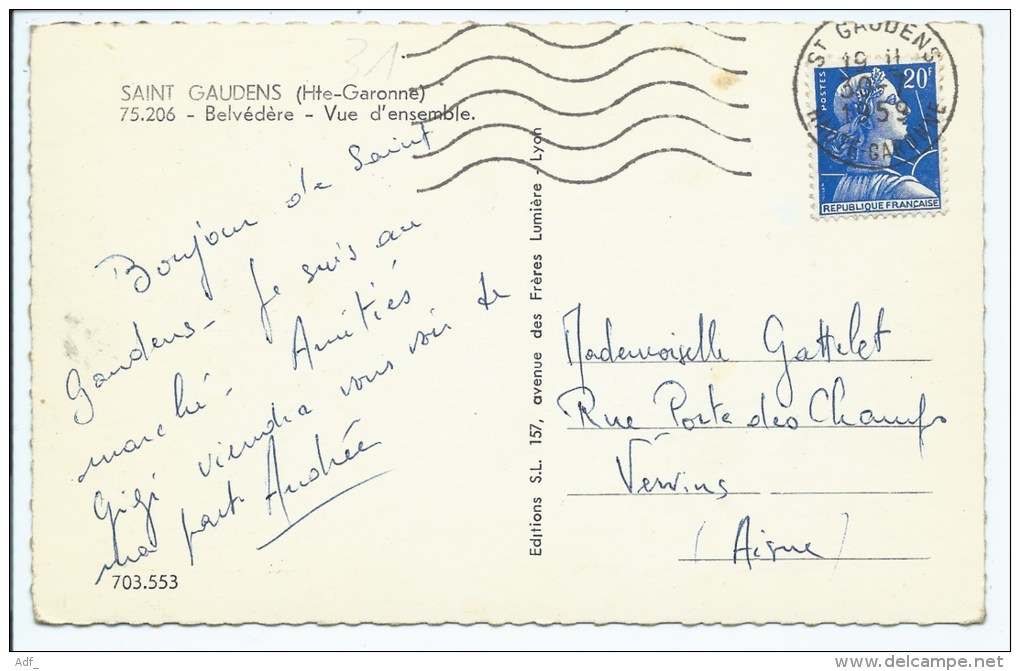 31
SAINT GAUDENS (Hte-Garonne)
75.206 - Belvédère - Vue d'ensemble.
Bonjour de Saint
Gaudens - Je suis au
marché. Amitiés
Gigi viendra vous voir de
ma part. Andrée
703.553
Editions S.L. 157, avenue des Frères Lumière - Lyon
ST GAUDENS
19 H
30-7
1959
HTE GARONNE
POSTES
20F
REPUBLIQUE FRANÇAISE
Mademoiselle Gattelet
Rue Porte des Champs
Vervins
(Aisne)
Adf_
delcampe.net